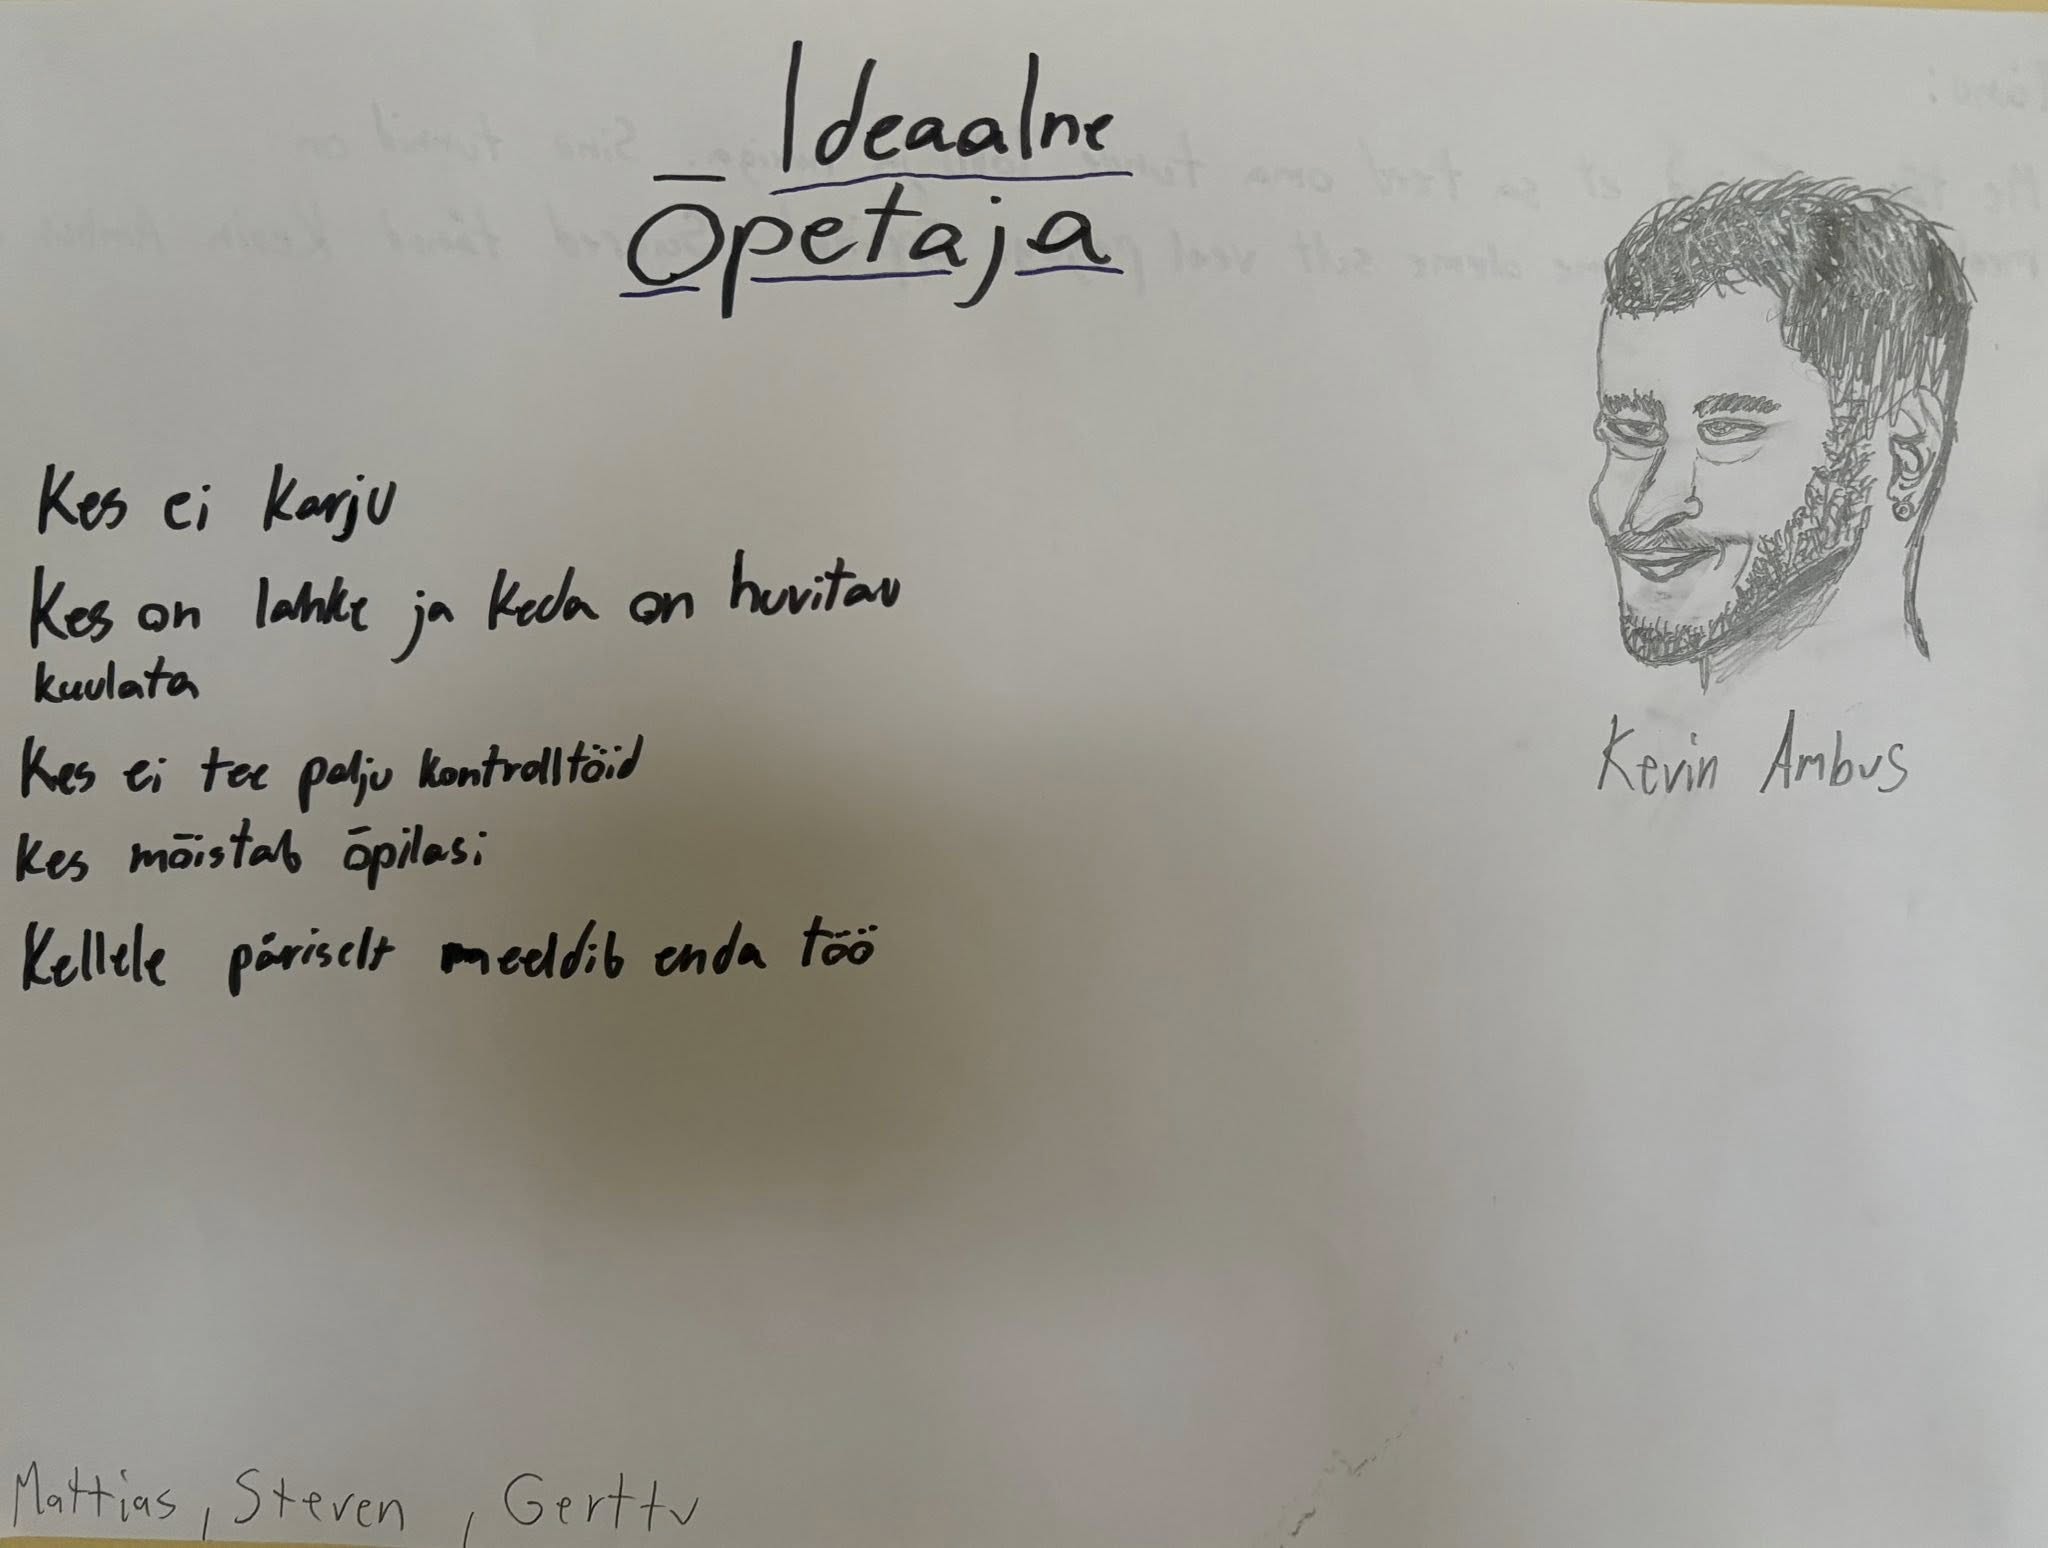 Ideaalne
Õpetaja
Kes ei karju
Kes on lahke ja keda on huvitav
kuulata
Kes ei tee palju kontrolltöid
Kes mõistab õpilasi
Kellele päriselt meeldib enda töö
Kevin Ambus
Mattias, Steven, Gerttu